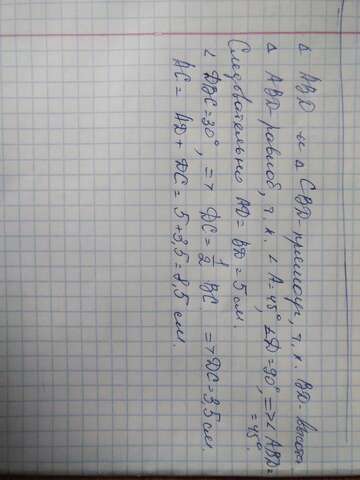 Δ ABD и Δ CBD-прямоуг, т.к. BD-высота
Δ ABD-равноб, т.к. ∠A=45°, ∠D=90°, => ∠ABD=
=45°.
Следовательно AD=BD=5 см.
∠ DBC=30°, => DC=1/2 BC. => DC=3,5 см.
AC= AD+DC=5+3,5=8,5 см.